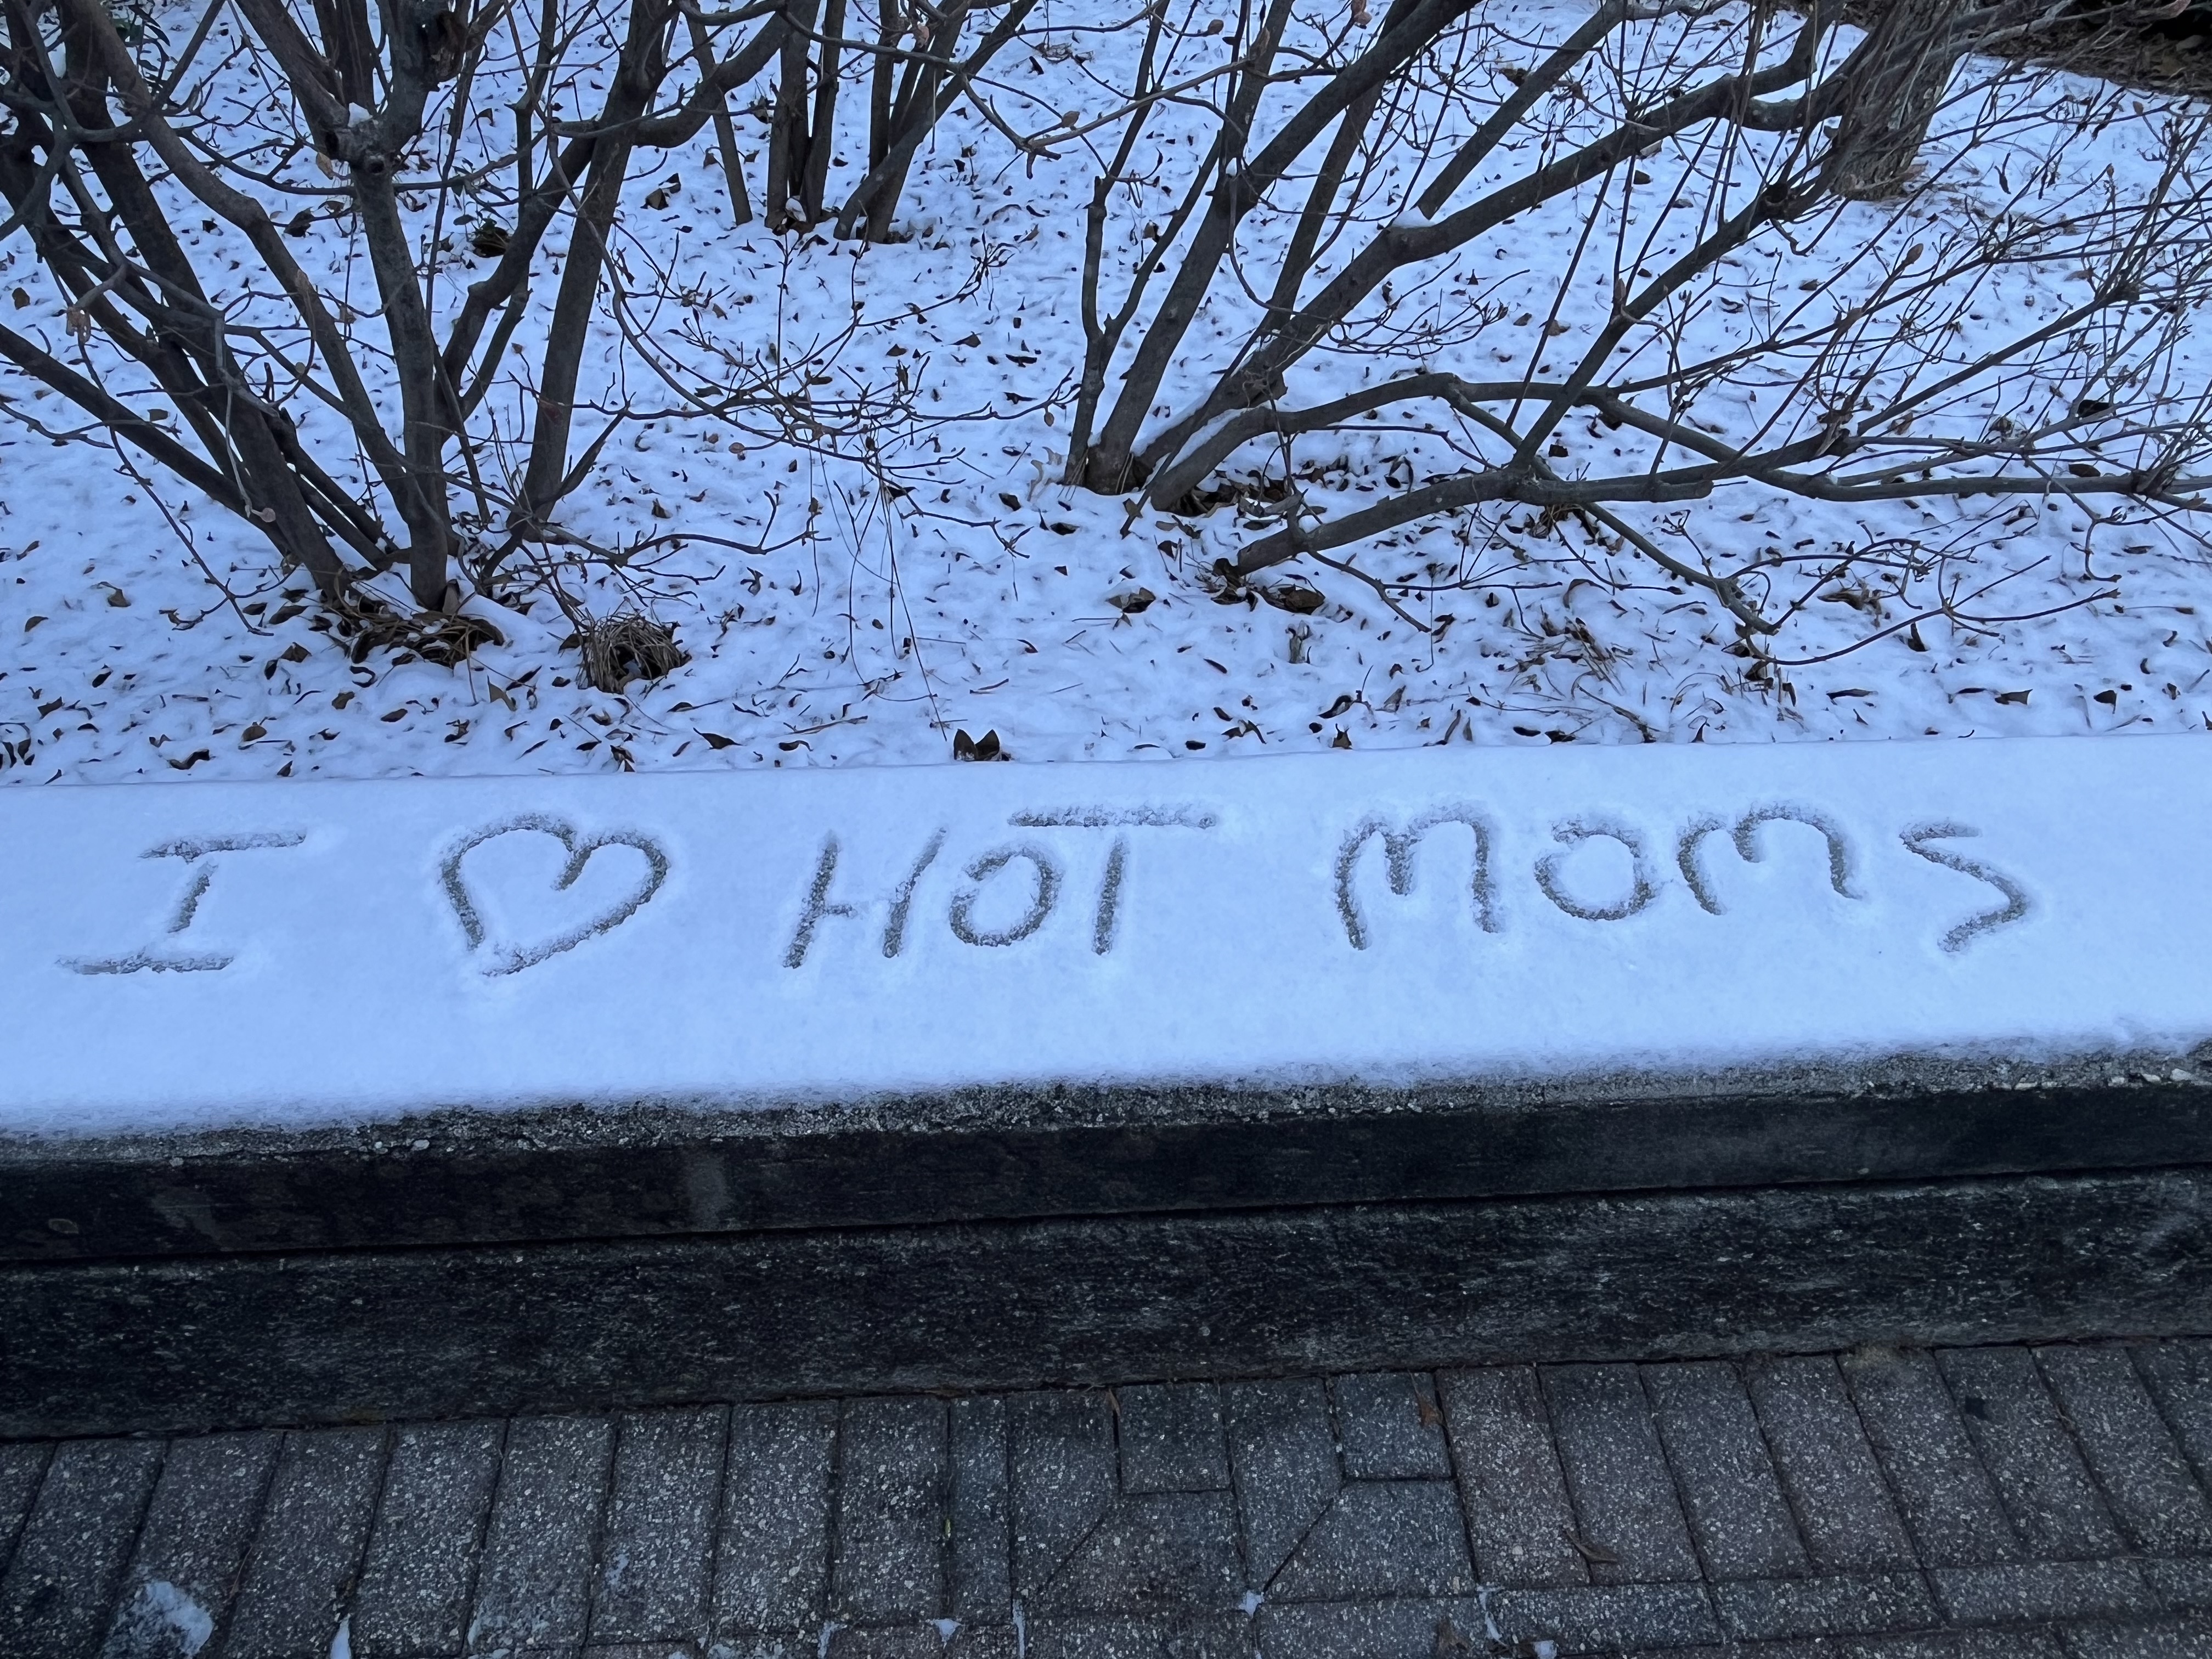 I ♡ HOT MOMS